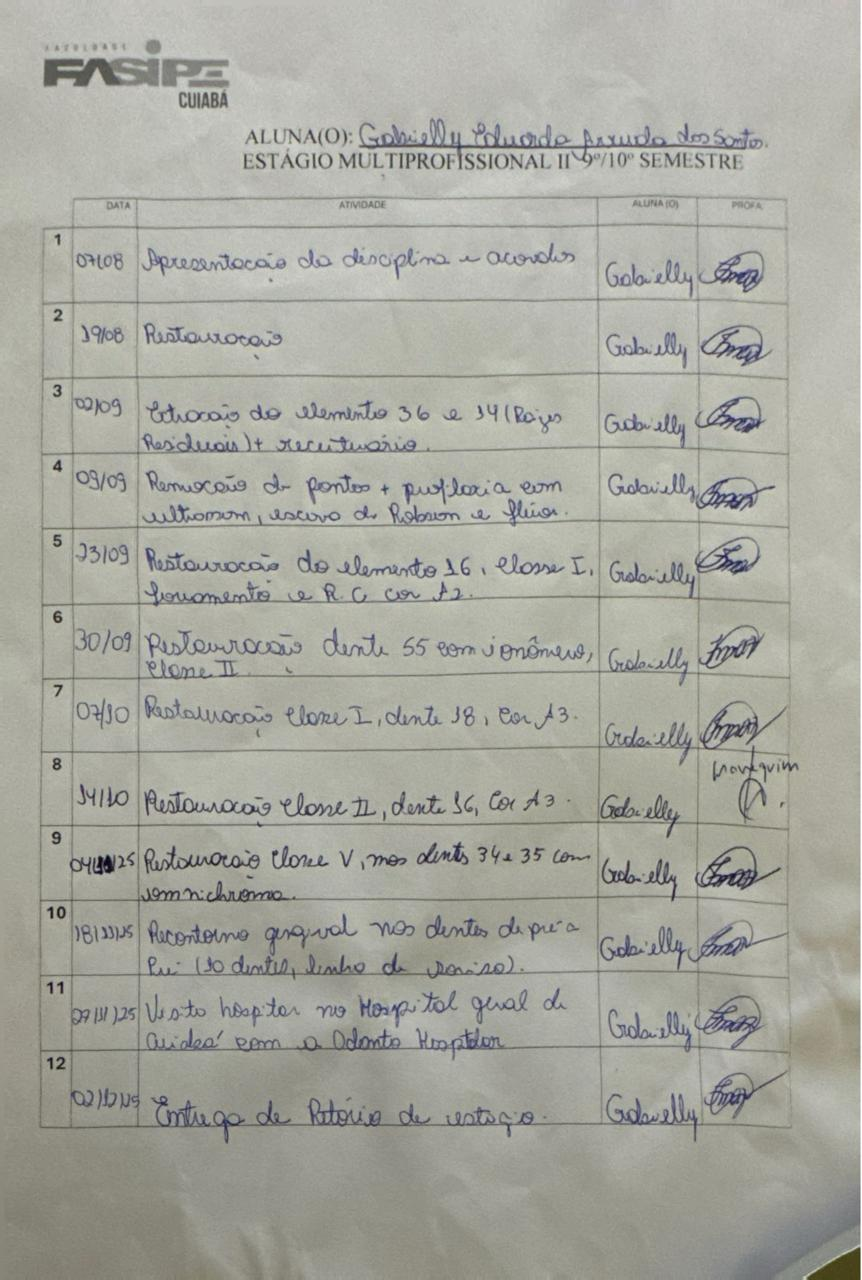 FACULDADE
FASIPE
CUIABÁ
ALUNA(O): Gabrielly Eduarda Arruda dos Santos.
ESTÁGIO MULTIPROFISSIONAL II 9º/10º SEMESTRE
DATA ATIVIDADE ALUNA (O) PROFA
1 07/08 Apresentação da disciplina e acordos Gabrielly
2 19/08 Restauração Gabrielly
3 02/09 Extração do elemento 36 e 14 (Raízes
Residuais) + receituário. Gabrielly
4 09/09 Remoção de pontos + profilaxia com
ultrassom, escova de Robson e flúor. Gabrielly
5 23/09 Restauração do elemento 16, Classe I,
forramento e R.C cor A2. Gabrielly
6 30/09 Restauração dente 55 com ionômero,
Classe II. Gabrielly
7 07/10 Restauração Classe I, dente 18, Cor A3. Gabrielly
8 14/10 Restauração Classe II, dente 16, Cor A3. Gabrielly manequim
9 Restauração Classe V, nos dents 34 e 35 com
omnichroma. Gabrielly
10 18/11/25 Recontorno gengival nos dentes de pré a
Pré (10 dentes, linha do sorriso). Gabrielly
11 Visita hospitar no Hospital geral de
Cuiabá com a Odonto Hospitalar Gabrielly
12 02/12/25 Entrega de Retório de estágio. Gabrielly